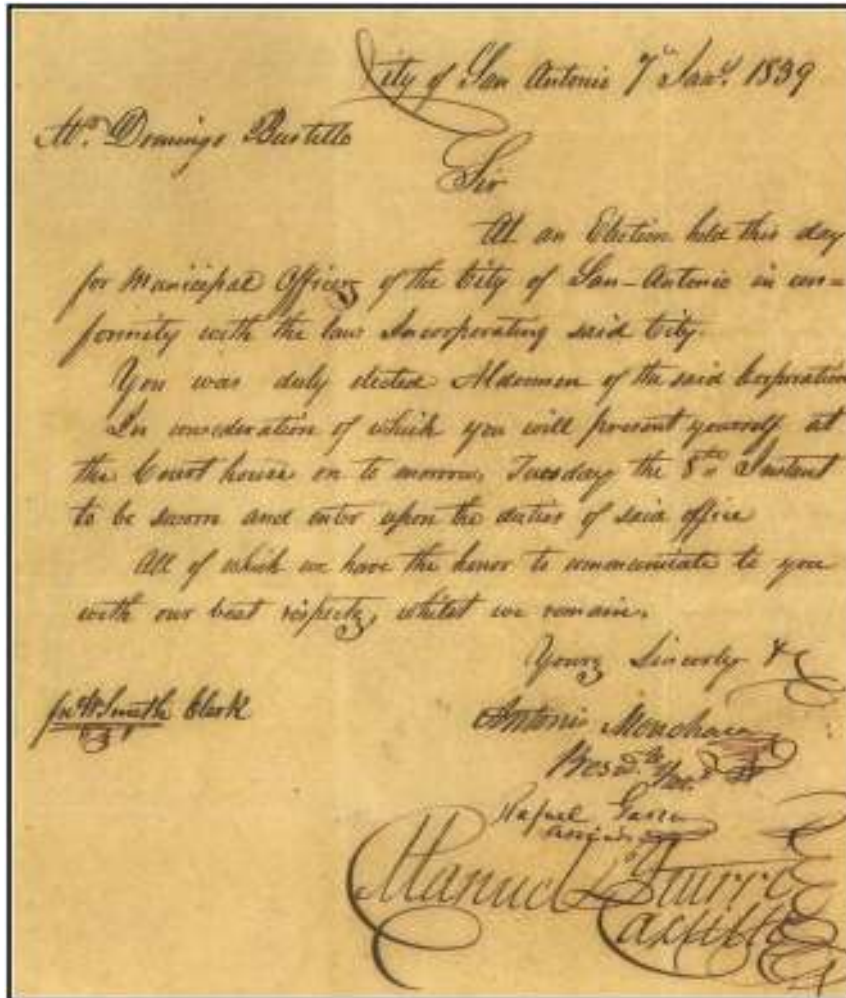 City of San Antonio 7th Jany. 1839
Mr. Domingo Bustillo
Sir
At an Election held this day
for Municipal Officers of the City of San-Antonio in con=
formity with the law Incorporating said City.
You was duly elected Alderman of the said Corporation
In consideration of which you will present yourself at
the Court house on to morrow, Tuesday the 8th Instant
to be sworn and enter upon the duties of said office
All of which we have the honor to communicate to you
with our best respects, whilst we remain.
Yours Sincerely &
Jno W Smith Clerk
Antonio Menchaca
Rafael Garza
Manuel